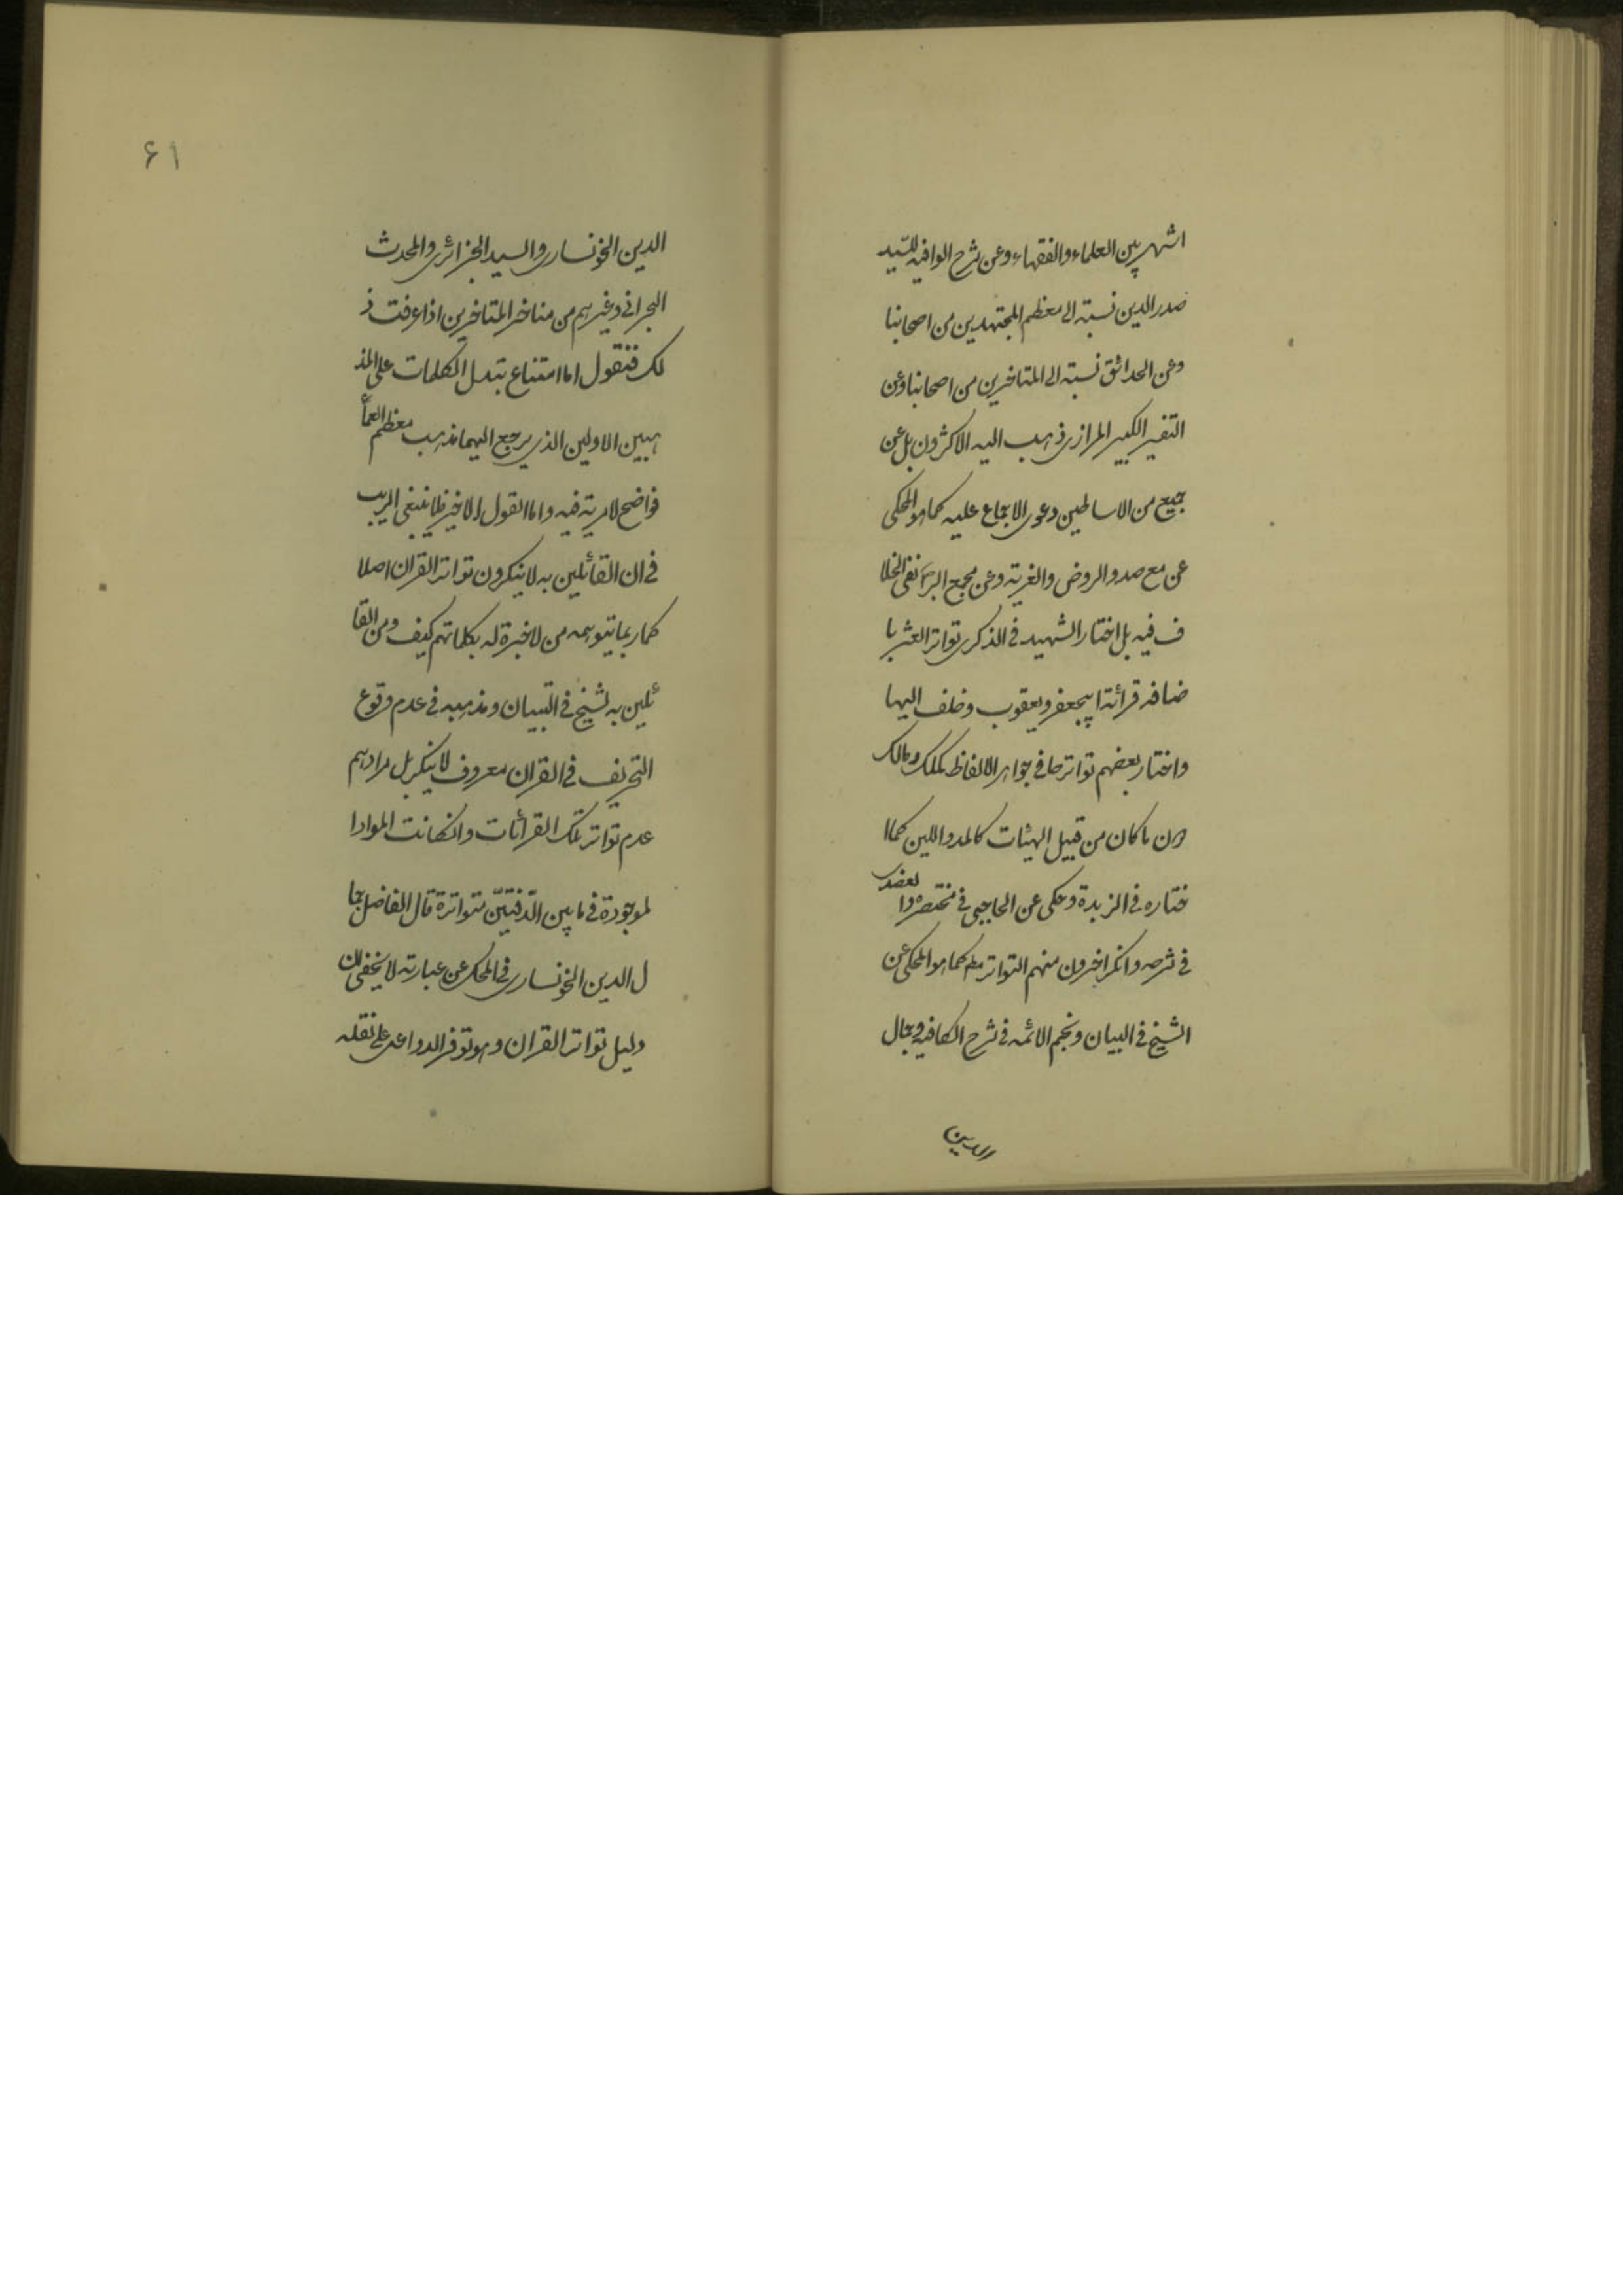 اشهر بين العلماء والفقهاء وعن شرح الوافيه للسّيد
صدرالدين نسبته الى معظم المجتهدين من اصحابنا
وعن الحدائق نسبته الى المتاخرين من اصحابنا وعن
التفسير الكبير للرازى ذهب اليه الاكثرون بل عن
جميع من الاساطين دعوى الاجماع عليه كما هو المحكى
عن مع صد والروض والغرية وعن مجمع البر نفى الخلا
ف فيه بل اختار الشهيد فى الذكرى تواتر العشر با
ضافه قرائة ابيجعفر ويعقوب وخلف اليها
واختار بعضهم تواترها فى جواهر الالفاظ كملك ومالك
دون ما كان من قبيل الهيئات كالمد واللين كما ا
ختاره فى الزبدة وحكى عن الحاجبى فى مختصره والعضدى
فى شرحه وانكر اخرون منهم التواتر مط كما هو المحكى عن
الشيخ فى البيان ونجم الائمه فى شرح الكافيه وجمال
الدين
۶۱
الدين الخونسارى والسيد الجزائرى والمحدث
البحرانى وغيرهم من متاخر المتاخرين اذا عرفت ذ
لك فنقول اما امتناع تبدل الكلمات على المذ
هبين الاولين الذى يرجع اليهما مذهب معظم العمأ
فواضح لامرية فيه واما القول الاخير فلا ينبغى الريب
فى ان القائلين به لا ينكرون تواتر القران اصلا
كما ربما يتوهمه من لا خبرة له بكلماتهم كيف ومن القا
ئلين به الشيخ فى التبيان ومذهبه فى عدم وقوع
التحريف فى القران معروف لا ينكر بل مرادهم
عدم تواتر تلك القرائات وانكانت المواد ا
لموجودة فى ما بين الدّفتيّن متواترة قال الفاضل جما
ل الدين الخونسارى فى المحكى عن عبارته لا يخفى ان
دليل تواتر القران وهو توفر الدواعى على نقله